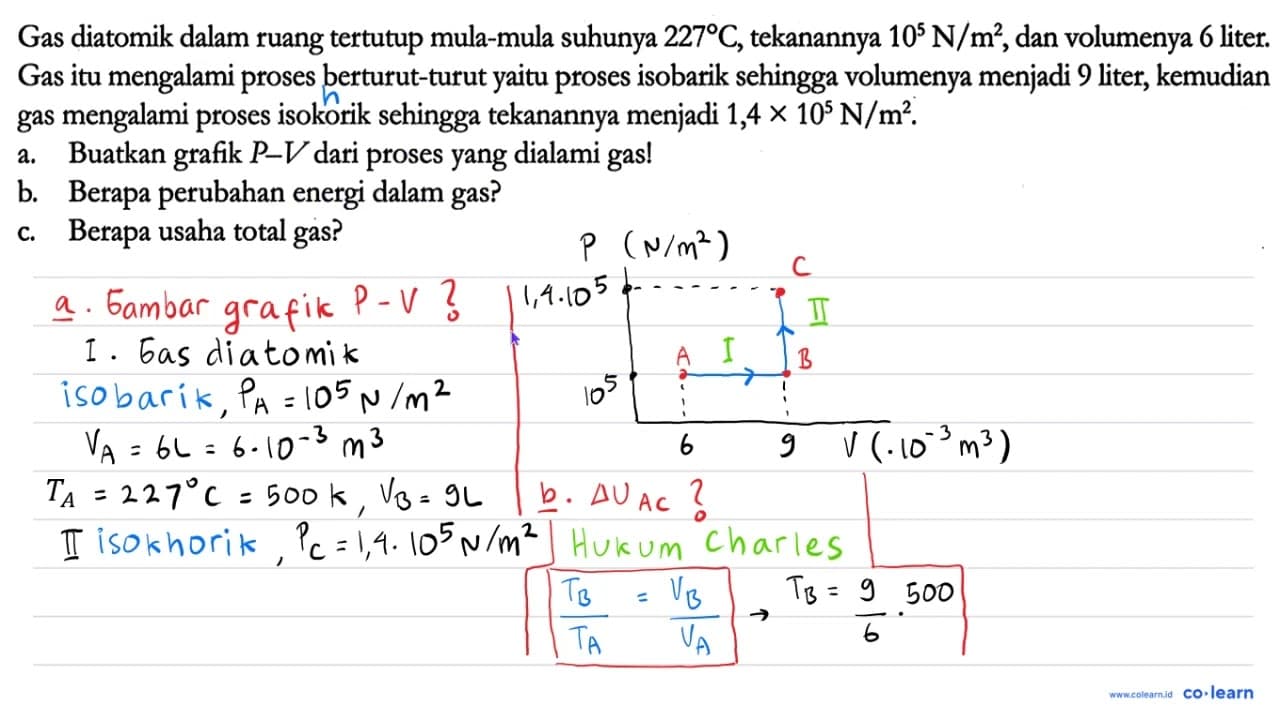 Gas diatomik dalam ruang tertutup mula-mula suhunya 227°C, tekanannya 10⁵ N/m², dan volumenya 6 liter.
Gas itu mengalami proses berturut-turut yaitu proses isobarik sehingga volumenya menjadi 9 liter, kemudian
h
gas mengalami proses isokorik sehingga tekanannya menjadi 1,4 × 10⁵ N/m².
a. Buatkan grafik P–V dari proses yang dialami gas!
b. Berapa perubahan energi dalam gas?
c. Berapa usaha total gas?
P (N/m²)
1,4.10⁵
C
II
A I B
10⁵
6 9 V (.10⁻³ m³)
a. Gambar grafik P-V ?
I. Gas diatomik
isobarik, P_A = 10⁵ N/m²
V_A = 6L = 6.10⁻³ m³
T_A = 227°C = 500 k, V_B = 9L
II isokhorik, P_C = 1,4. 10⁵ N/m²
b. ΔU_AC ?
Hukum Charles
T_B/T_A = V_B/V_A → T_B = 9/6 . 500
www.colearn.id co·learn